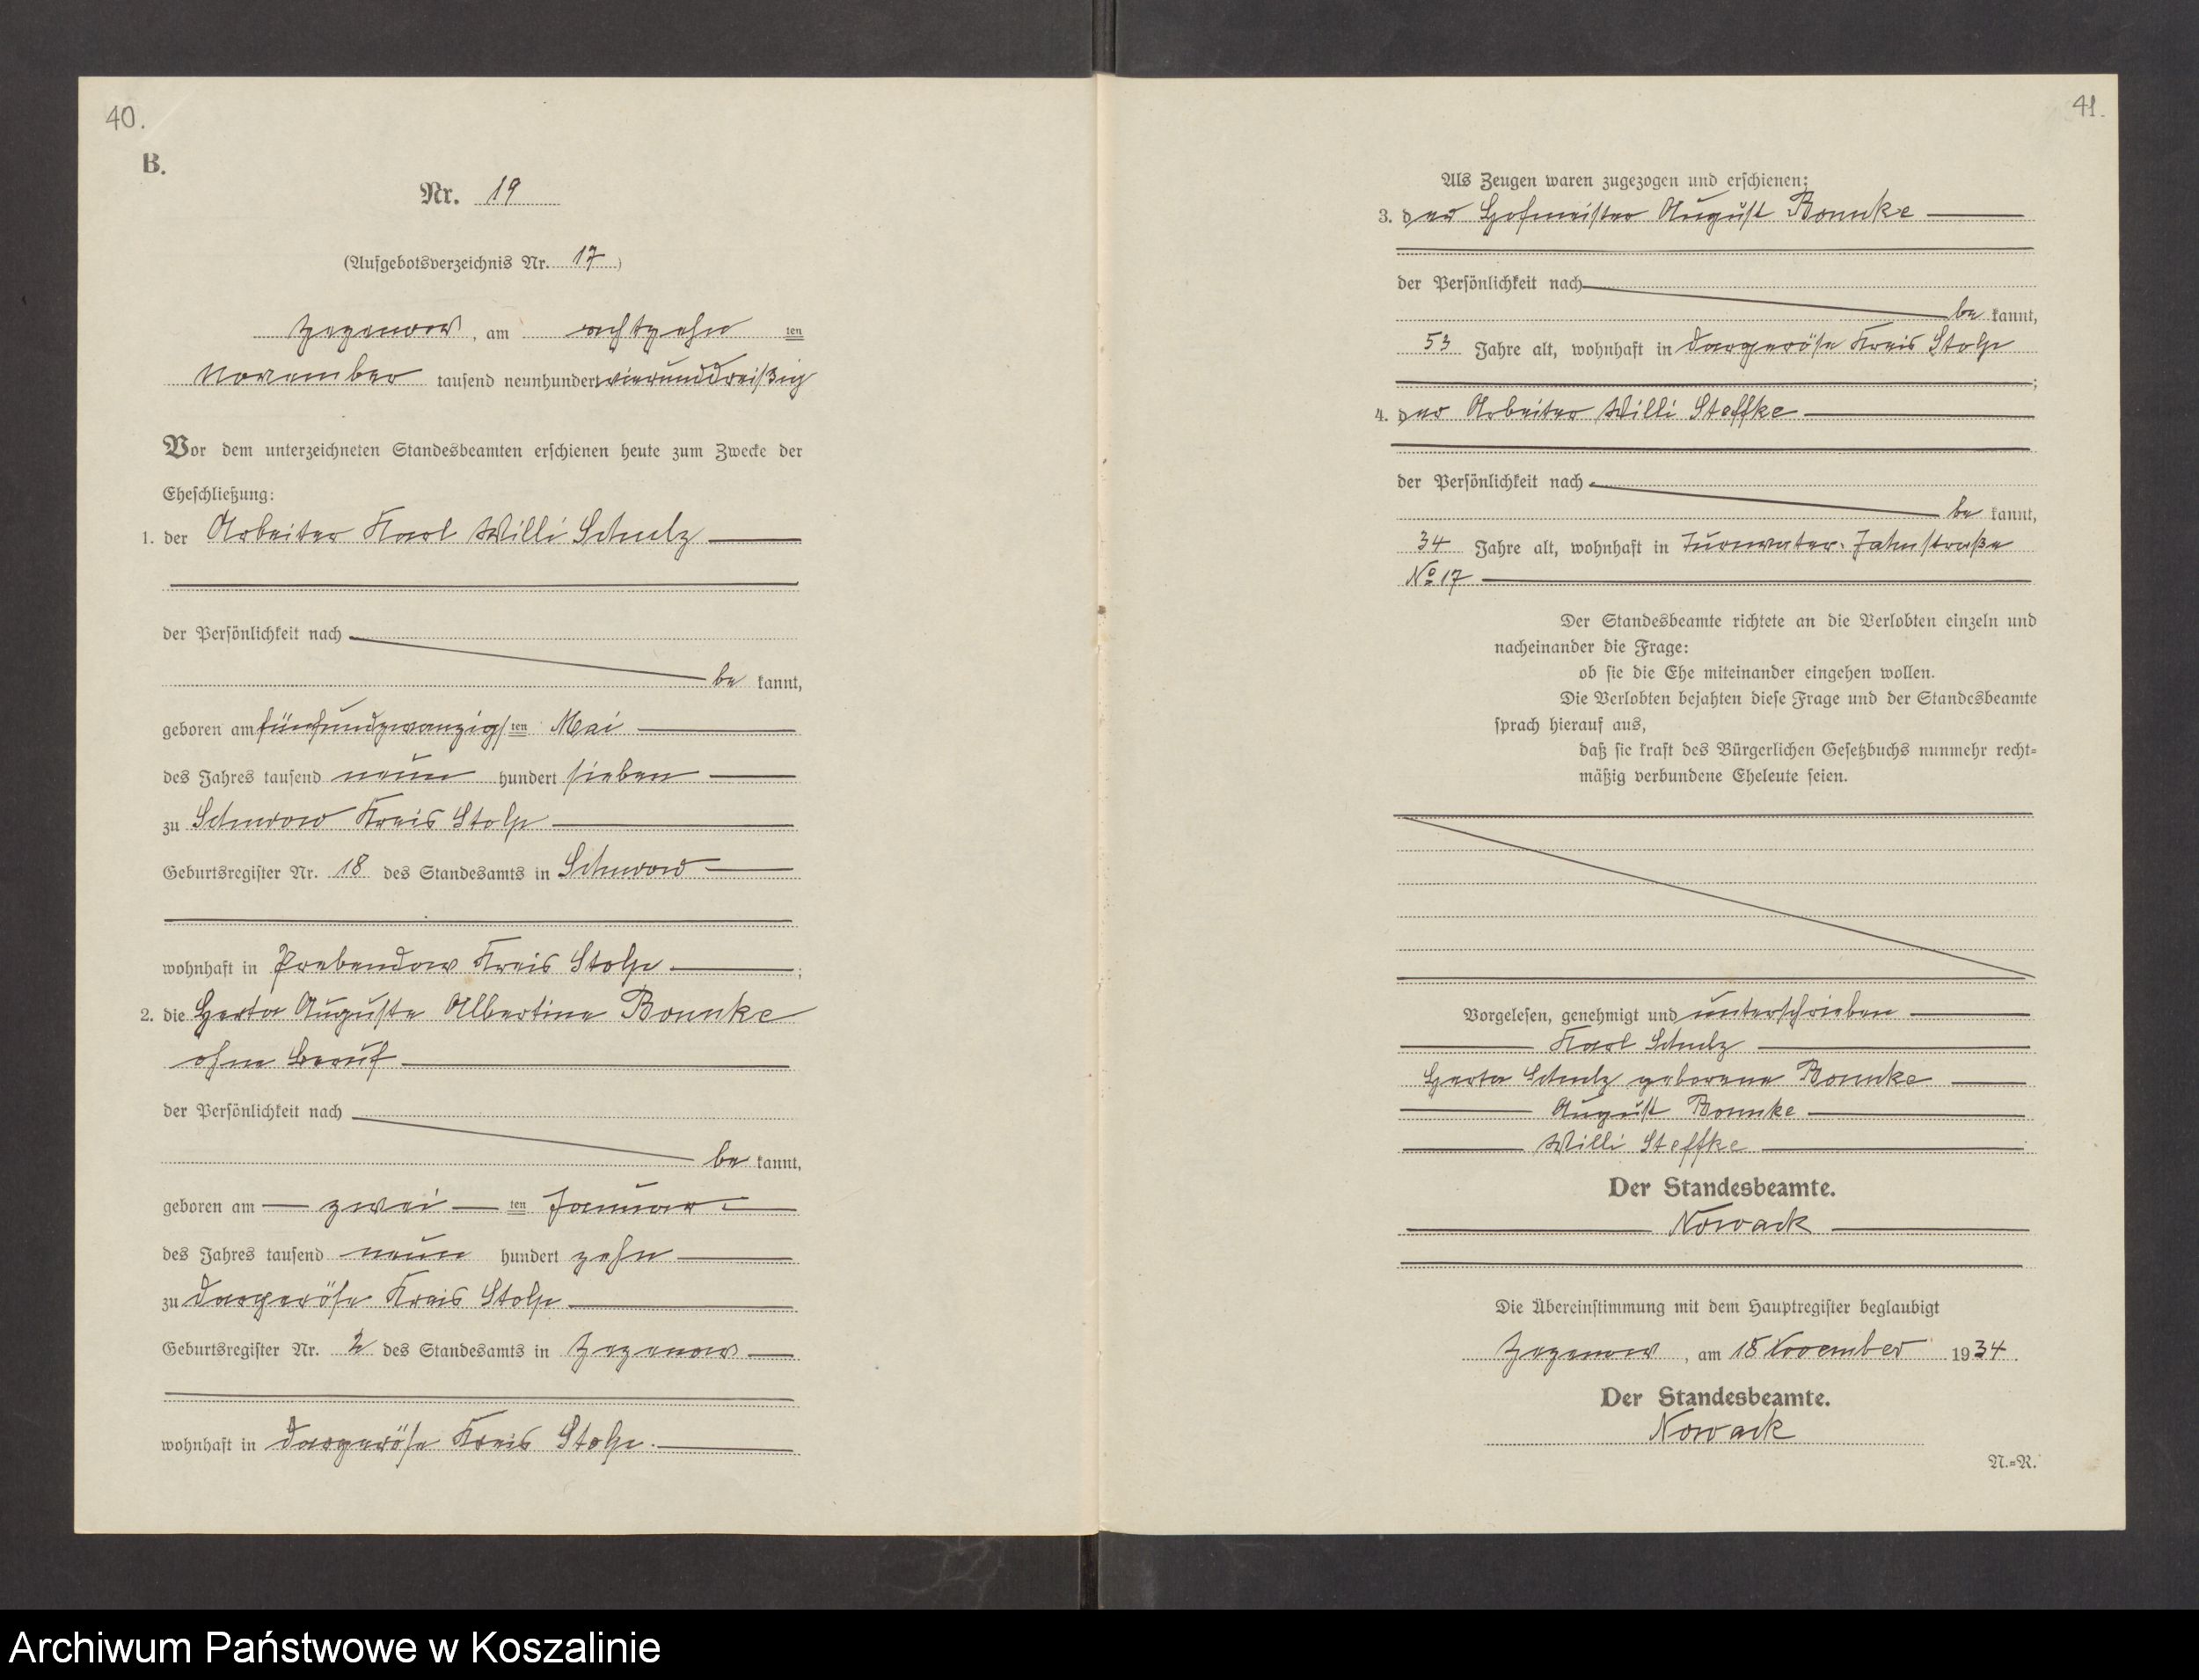 40.
B.
Nr. 19
(Aufgebotsverzeichnis Nr. 17)
Zezenow, am achtzehn ten
November tausend neunhundert vierunddreißig
Vor dem unterzeichneten Standesbeamten erschienen heute zum Zwecke der
Eheschließung:
1. der Arbeiter Karl Willi Schulz
der Persönlichkeit nach
be kannt,
geboren am fünfundzwanzigsten Mai
des Jahres tausend neun hundert sieben
zu Schurow Kreis Stolp
Geburtsregister Nr. 18 des Standesamts in Schurow
wohnhaft in Prebendow Kreis Stolp;
2. die Herta Auguste Albertine Bonnke
ohne Beruf
der Persönlichkeit nach
be kannt,
geboren am zwei ten Januar
des Jahres tausend neun hundert zehn
zu Dargeröse Kreis Stolp
Geburtsregister Nr. 2 des Standesamts in Zezenow
wohnhaft in Dargeröse Kreis Stolp.
41.
Als Zeugen waren zugezogen und erschienen:
3. der Hofmeister August Bonnke
der Persönlichkeit nach
be kannt,
53 Jahre alt, wohnhaft in Dargeröse Kreis Stolp
;
4. der Arbeiter Willi Steffke
der Persönlichkeit nach
be kannt,
34 Jahre alt, wohnhaft in Turnvater-Jahnstraße
No 17
Der Standesbeamte richtete an die Verlobten einzeln und
nacheinander die Frage:
ob sie die Ehe miteinander eingehen wollen.
Die Verlobten bejahten diese Frage und der Standesbeamte
sprach hierauf aus,
daß sie kraft des Bürgerlichen Gesetzbuchs nunmehr recht-
mäßig verbundene Eheleute seien.
Vorgelesen, genehmigt und unterschrieben
Karl Schulz
Herta Schulz geborene Bonnke
August Bonnke
Willi Steffke
Der Standesbeamte.
Nowack
Die Übereinstimmung mit dem Hauptregister beglaubigt
Zezenow, am 18 November 1934.
Der Standesbeamte.
Nowack
N.-R.
Archiwum Państwowe w Koszalinie